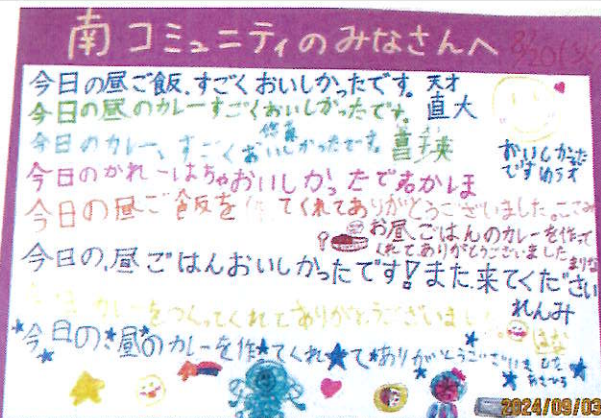 南コミュニティのみなさんへ 8/20(火)
今日の昼ご飯、すごくおいしかったです。天才
直大
今日の昼のカレーすごくおいしかったです。
今日のカレー、すごくおいしかったです。
おいしかった
です ゆうり
今日のかれーはちゃおいしかったです かしほ
今日の昼ご飯を作ってくれてありがとうございました。
お昼ごはんのカレーを作って
くれてありがとうございました
まりな
今日の、昼ごはんおいしかったです!また来てください
れんみ
カレーをつくってくれてありがとうございました
今日の昼のカレーを作ってくれてありがとうございました
2024/09/03